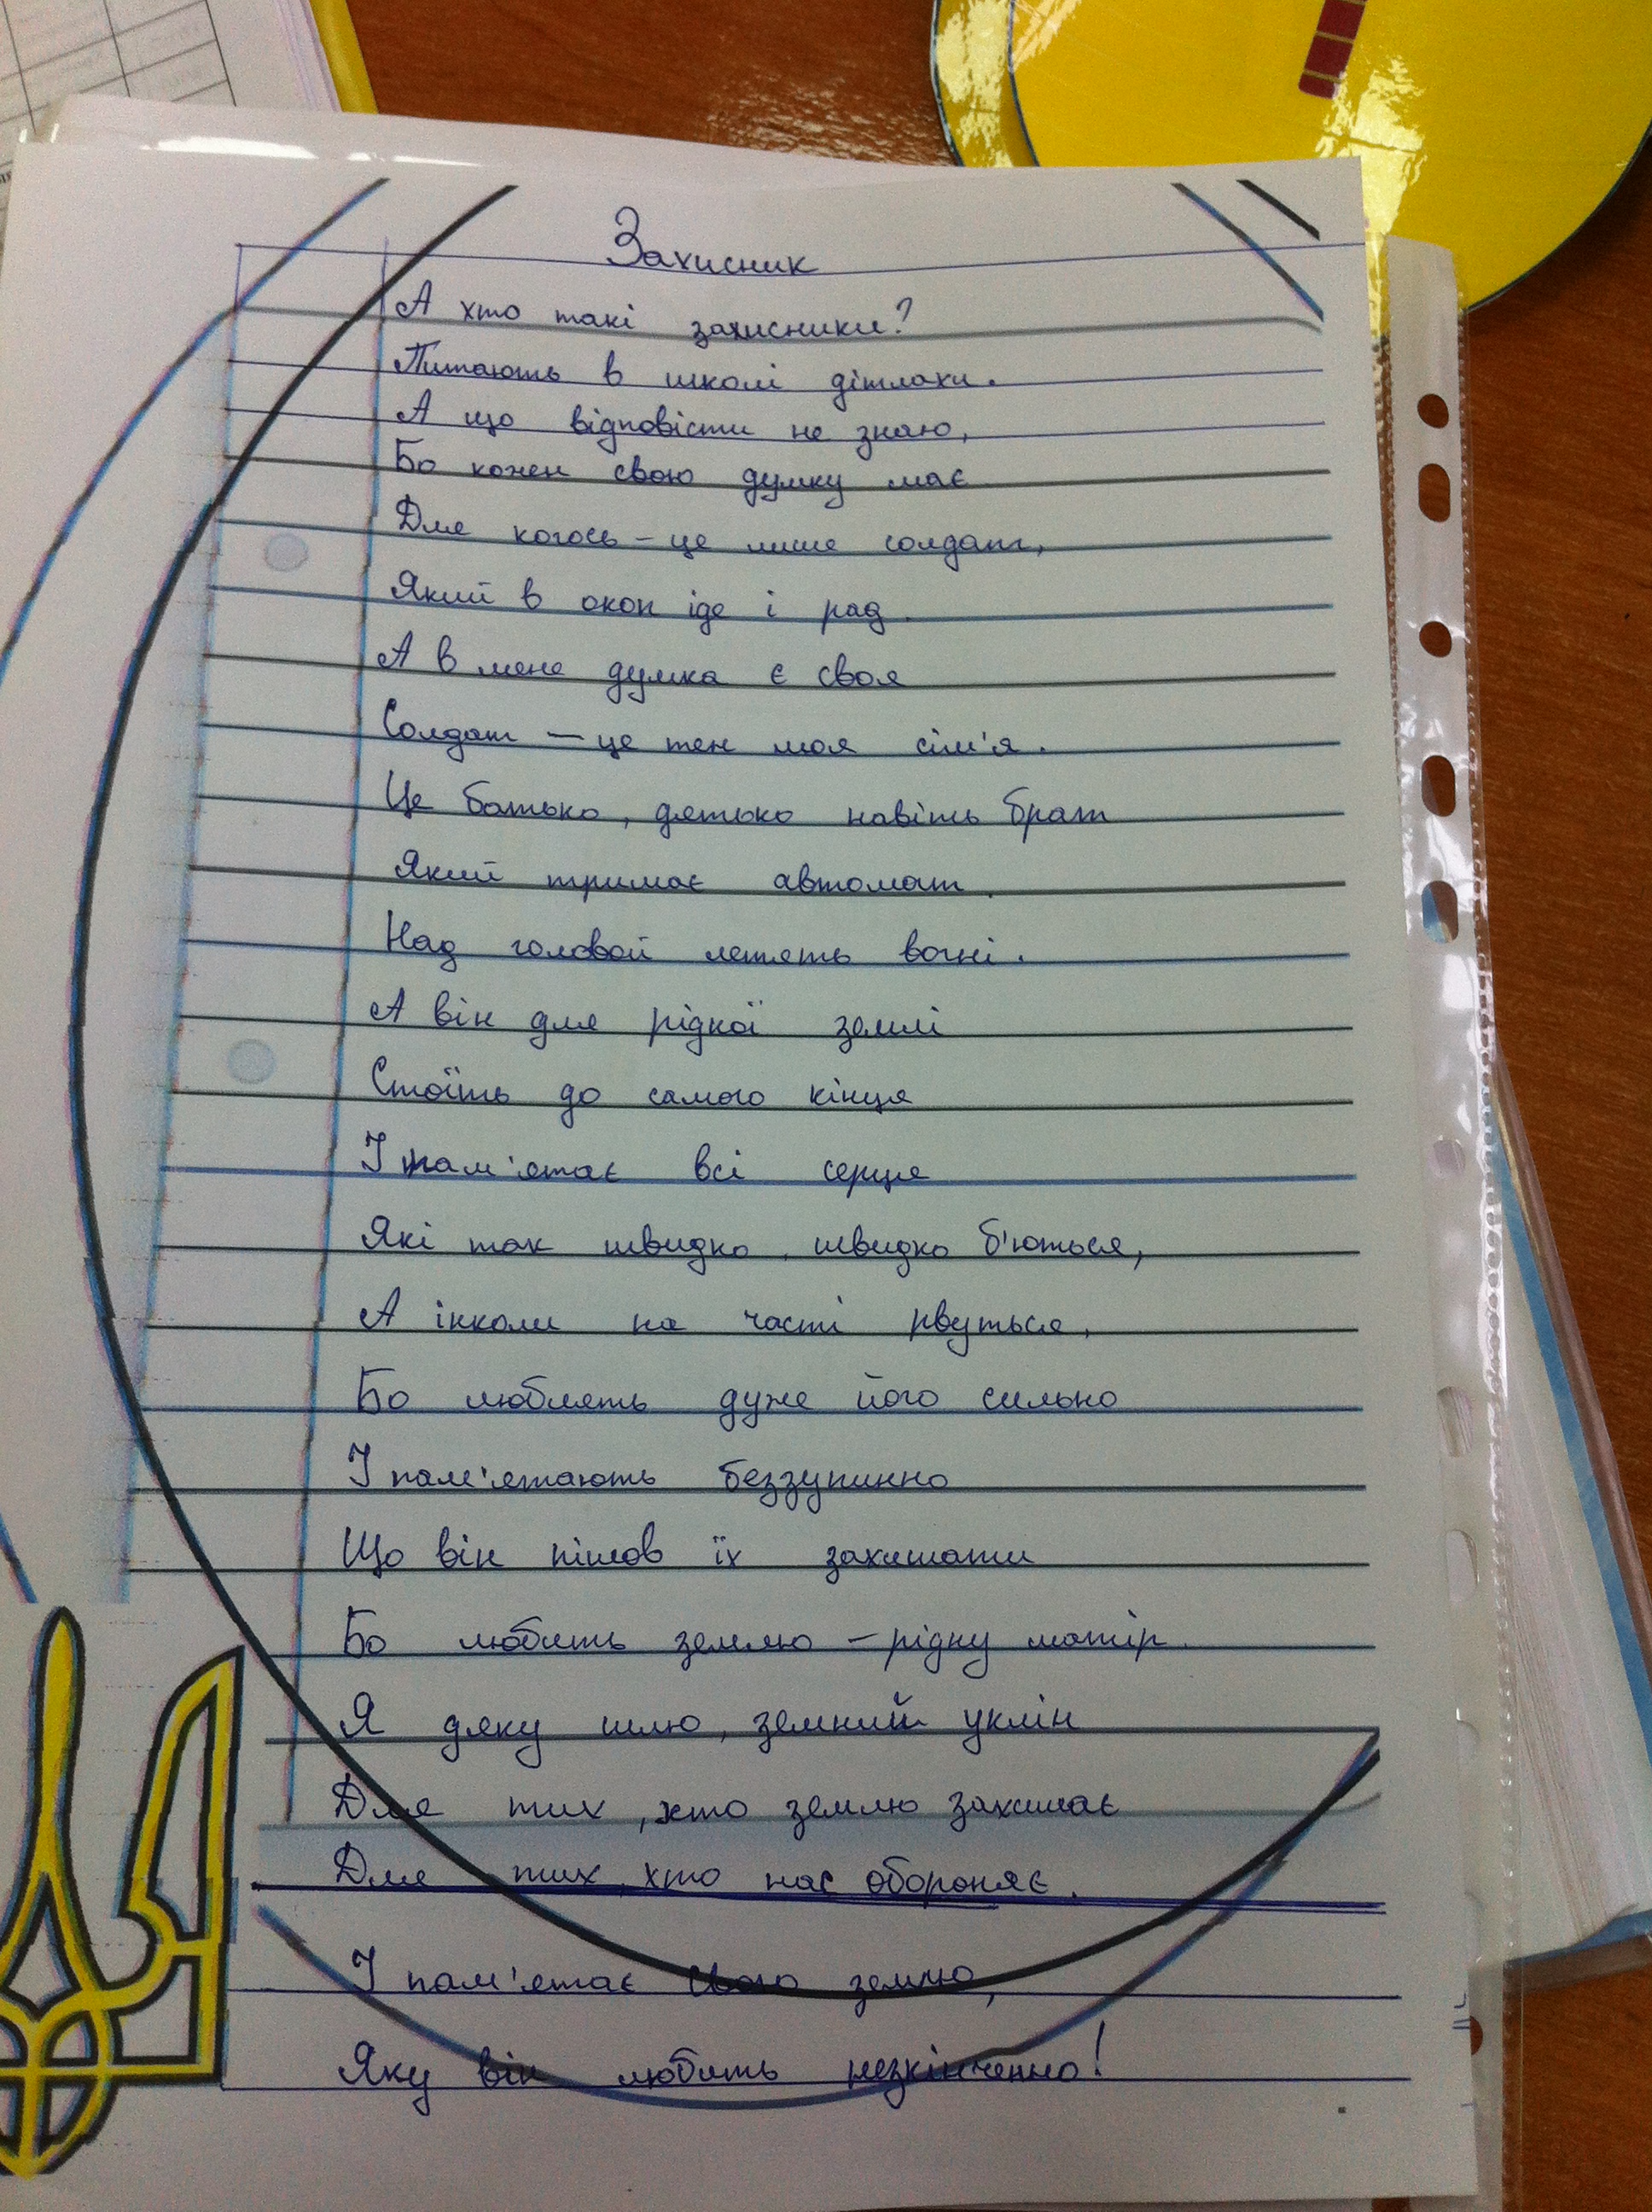 Захисник
А хто такі захисники?
Питають в школі дітлахи.
А що відповісти не знаю,
Бо кожен свою думку має
Для когось – це лише солдат,
Який в окоп іде і рад.
А в мене думка є своя
Солдат – це тен моя сім'я.
Це батько, дятько навіть брат
Який тримає автомат.
Над головой летять вогні.
А він для рідної землі
Стоїть до самого кінця
І пам'ятає всі серця
Які так швидко, швидко б'ються,
А інколи на часті рвуться.
Бо люблять дуже його сильно
І пам'ятають беззупинно
Що він пішов їх захищати
Бо любить землю – рідну матір.
Я дяку шлю, земний уклін
Для тих, хто землю захищає
Для тих, хто нас обороняє.
І пам'ятає свою землю,
Яку він любить незкінченно!